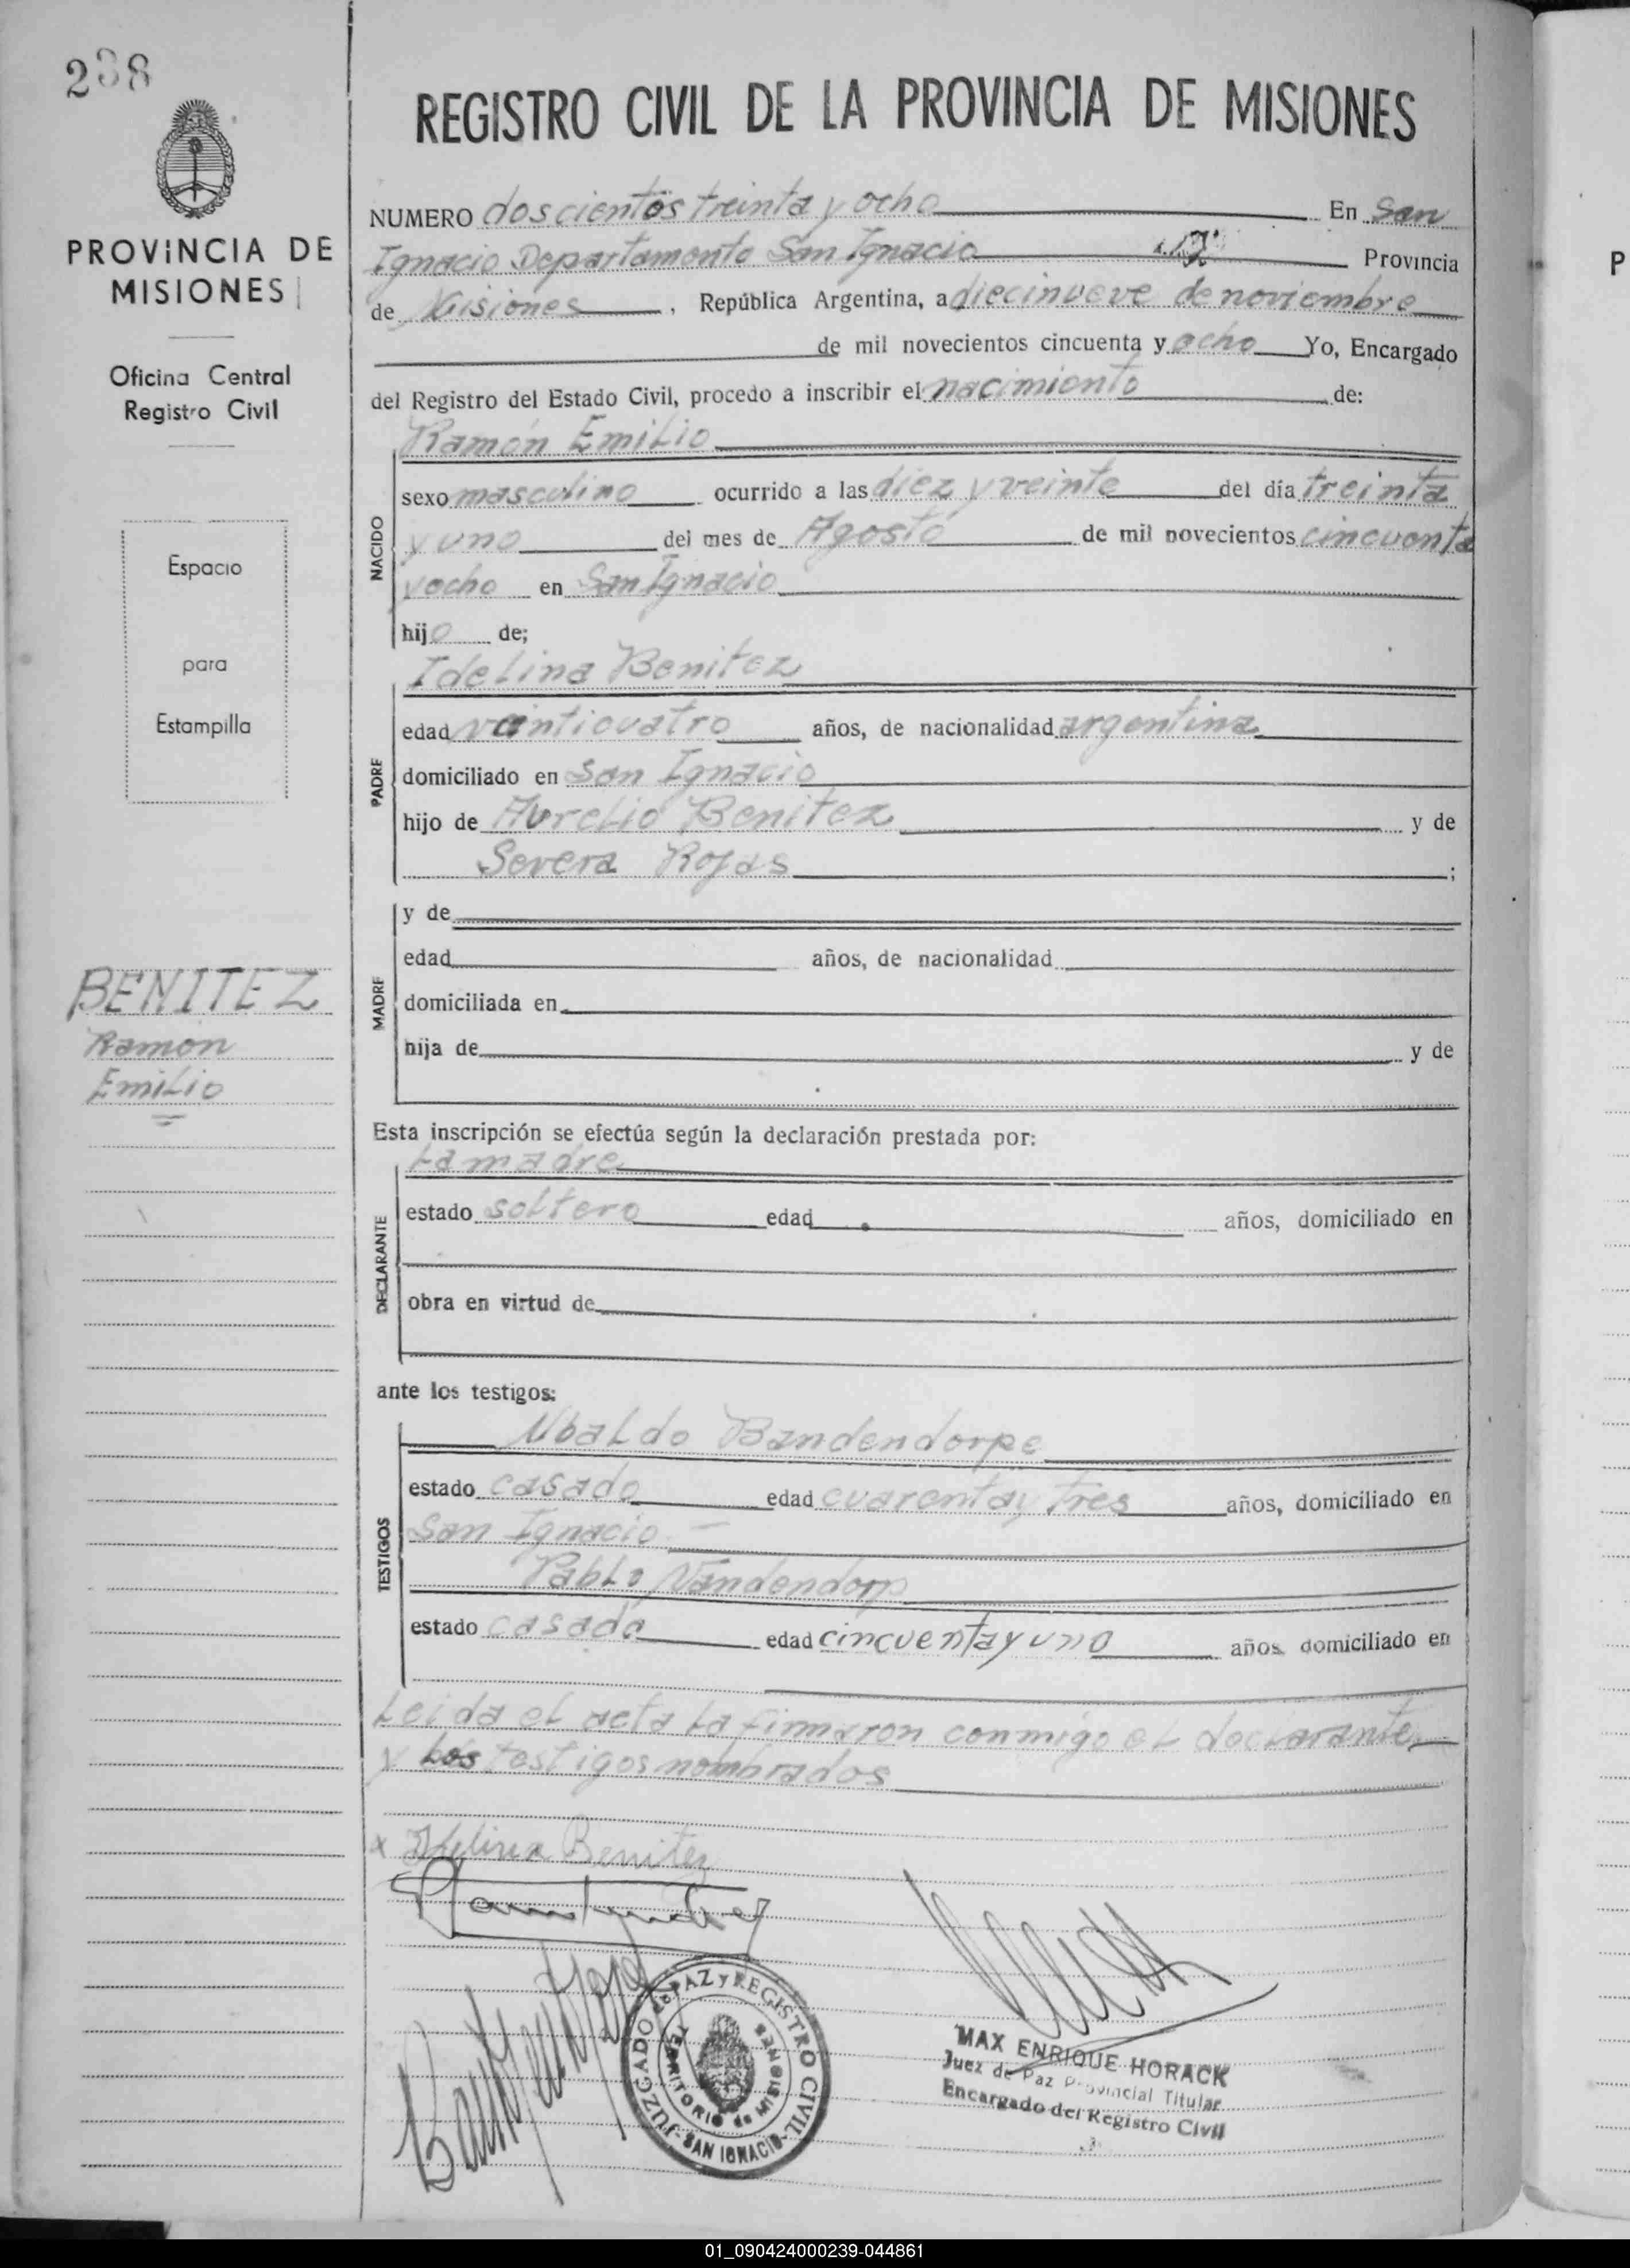 238
PROVINCIA DE
MISIONES
Oficina Central
Registro Civil
Espacio
para
Estampilla
BENITEZ
Ramon
Emilio
REGISTRO CIVIL DE LA PROVINCIA DE MISIONES
NUMERO doscientos treinta y ocho En San
Ignacio Departamento San Ignacio Provincia
de Misiones, República Argentina, a diecinueve de noviembre
de mil novecientos cincuenta y ocho Yo, Encargado
del Registro del Estado Civil, procedo a inscribir el nacimiento de:
Ramón Emilio
NACIDO
sexo masculino ocurrido a las diez y veinte del día treinta
y uno del mes de Agosto de mil novecientos cincuenta
y ocho en San Ignacio
hijo de;
Idelina Benitez
PADRE
edad veinticuatro años, de nacionalidad argentina
domiciliado en San Ignacio
hijo de Aurelio Benitez y de
Severa Rojas ;
MADRE
y de
edad años, de nacionalidad
domiciliada en
hija de y de
Esta inscripción se efectúa según la declaración prestada por:
La madre
DECLARANTE
estado soltero edad años, domiciliado en
obra en virtud de
ante los testigos:
Ubaldo Bandendorpe
TESTIGOS
estado casado edad cuarenta y tres años, domiciliado en
San Ignacio
Pablo Vandendorp
estado casado edad cincuenta y uno años domiciliado en
Leida el acta la firmaron conmigo el declarante
y los testigos nombrados
x Idelina Benitez
JUZGADO de PAZ y REGISTRO CIVIL
TERRITORIO de MISIONES
SAN IGNACIO
MAX ENRIQUE HORACK
Juez de Paz Provincial Titular
Encargado del Registro Civil
P
01_090424000239-044861